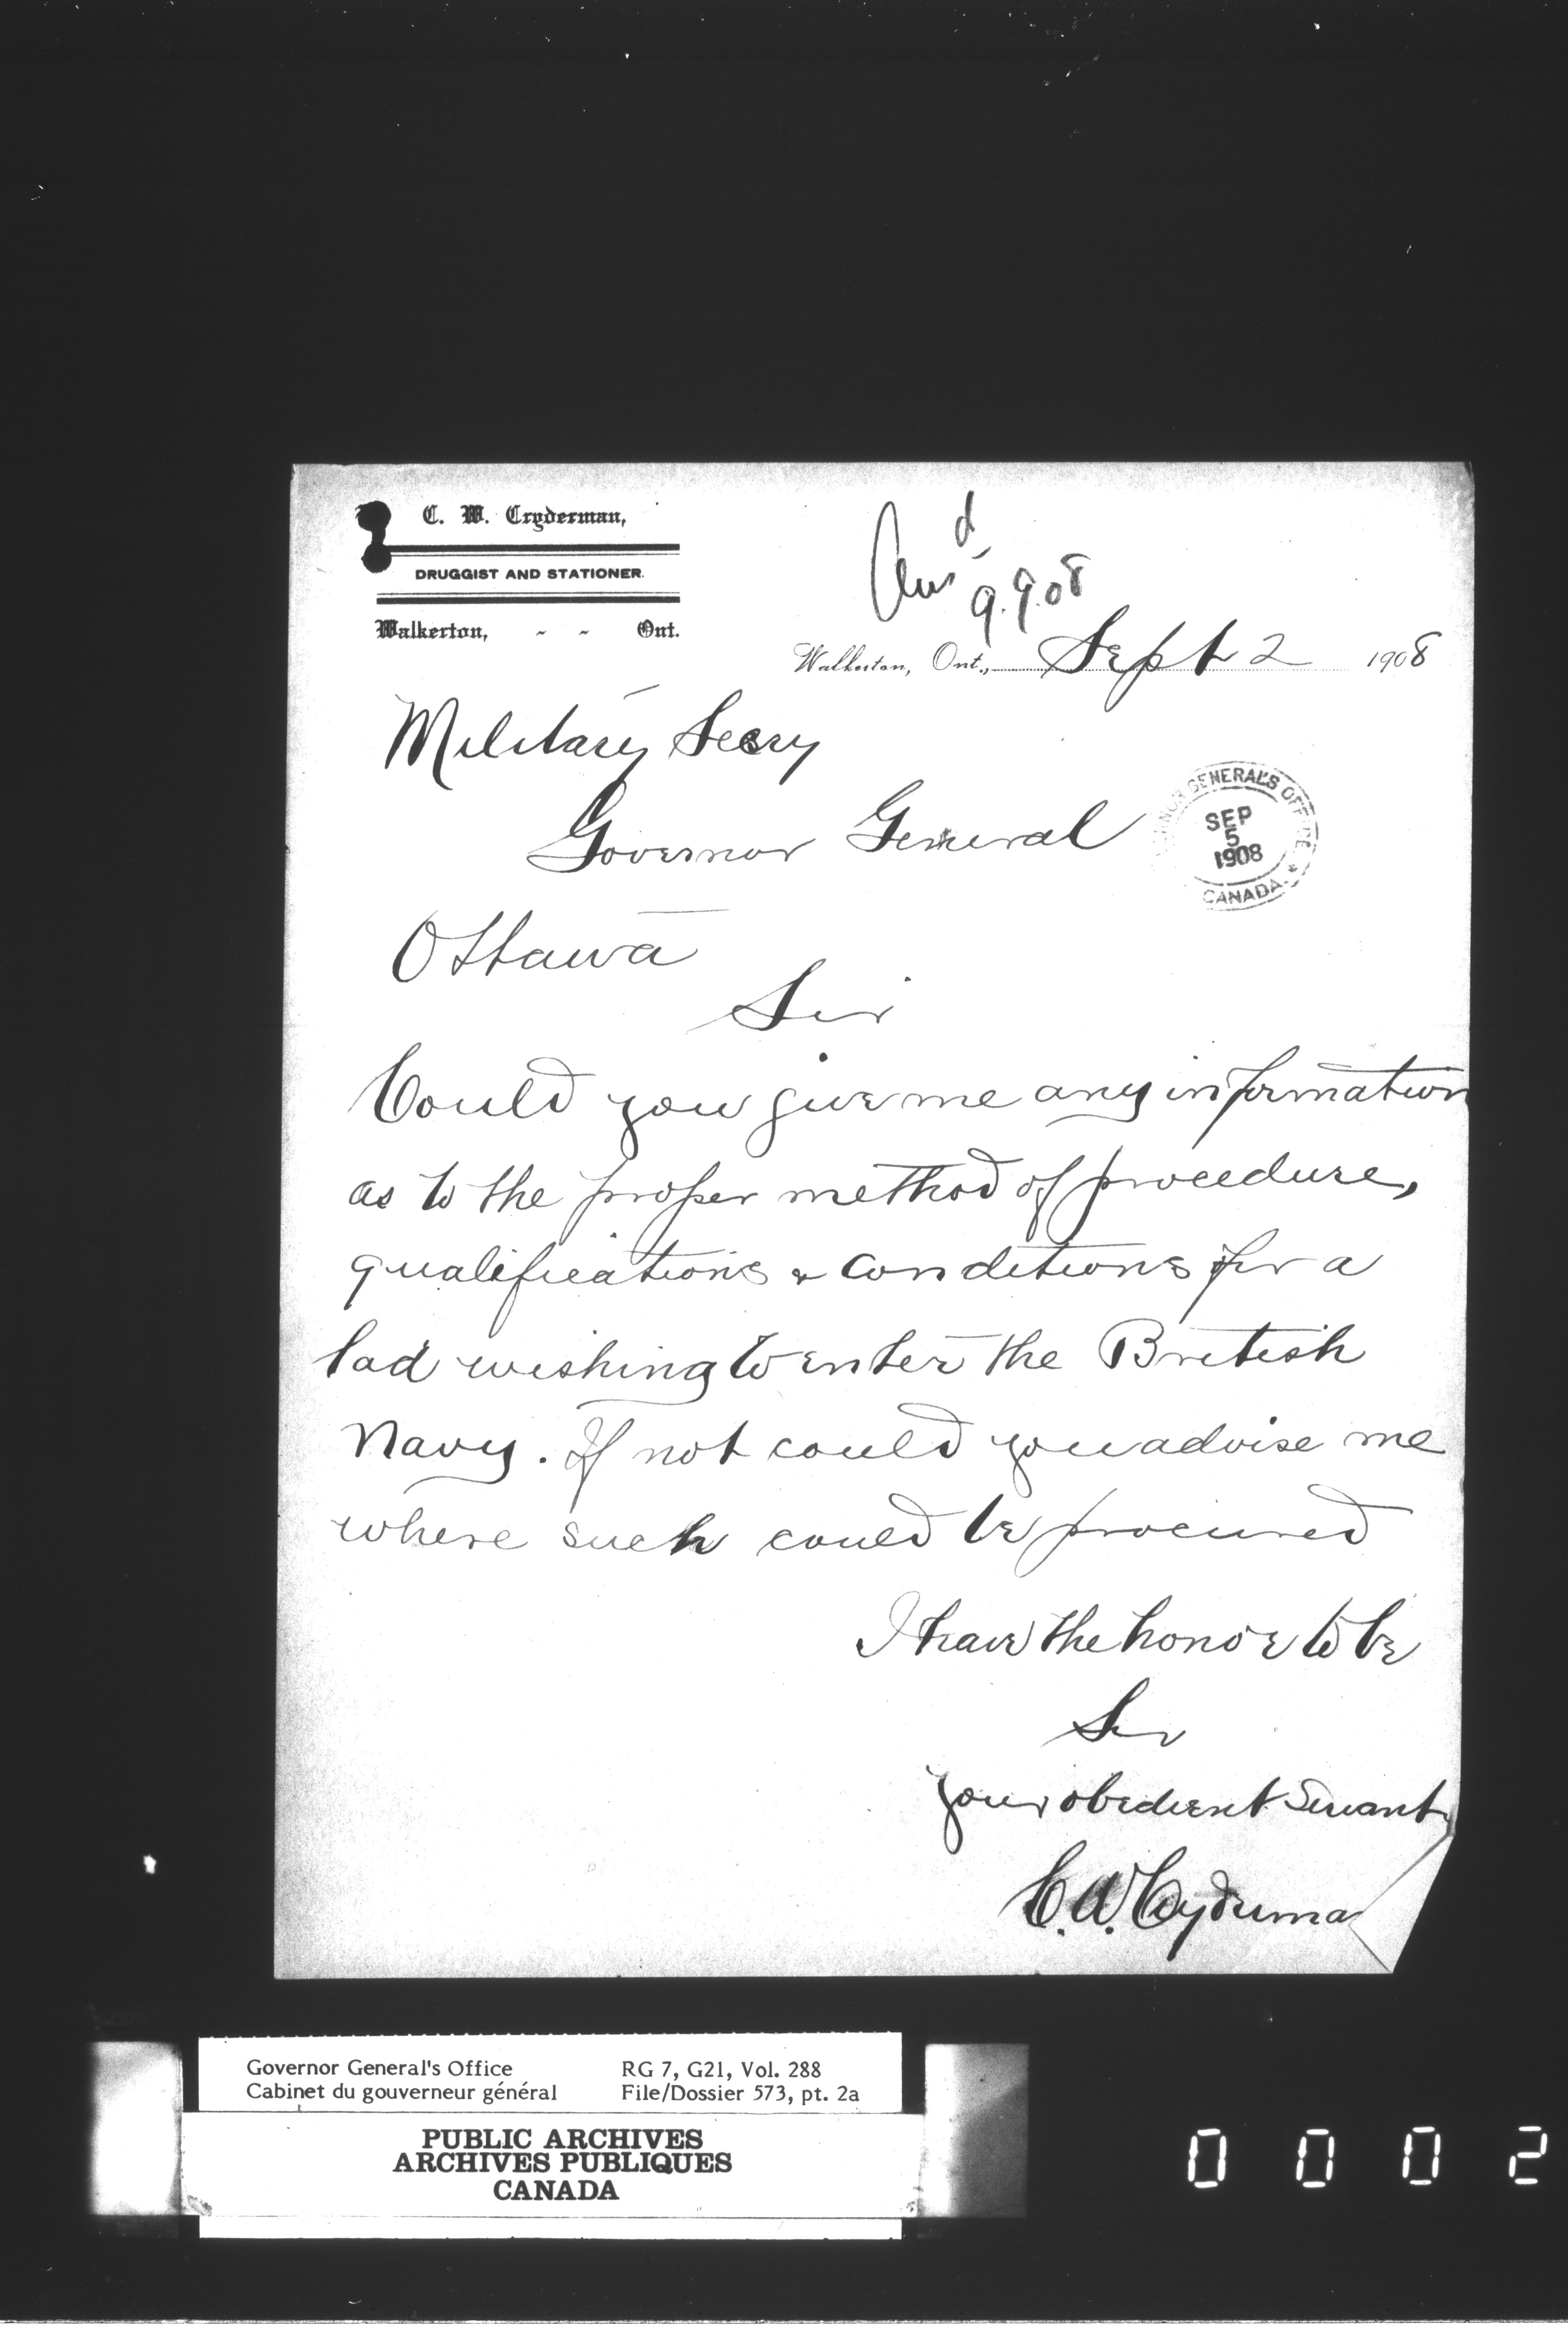 C. W. Cryderman,
DRUGGIST AND STATIONER.
Walkerton, - - Ont.
Ansd
9.9.08
Walkerton, Ont., Sept 2 1908
Military Secry
Governor General
GOVERNOR GENERAL'S OFFICE
SEP
5
1908
CANADA
Ottawa
Sir
Could you give me any information
as to the proper method of procedure,
qualifications & conditions for a
lad wishing to enter the British
Navy. If not could you advise me
where such could be procured
I have the honor to be
Sir
your obedient Servant
C. W. Cryderma
Governor General's Office RG 7, G21, Vol. 288
Cabinet du gouverneur général File/Dossier 573, pt. 2a
PUBLIC ARCHIVES
ARCHIVES PUBLIQUES
CANADA
0 0 0 2